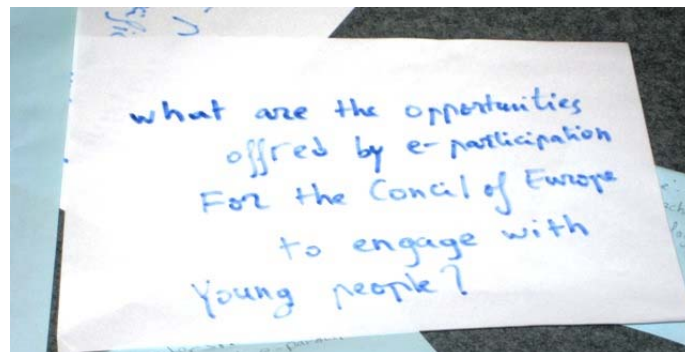 what are the opportunities
offred by e-participation
For the Concil of Europe
to engage with
Young people?